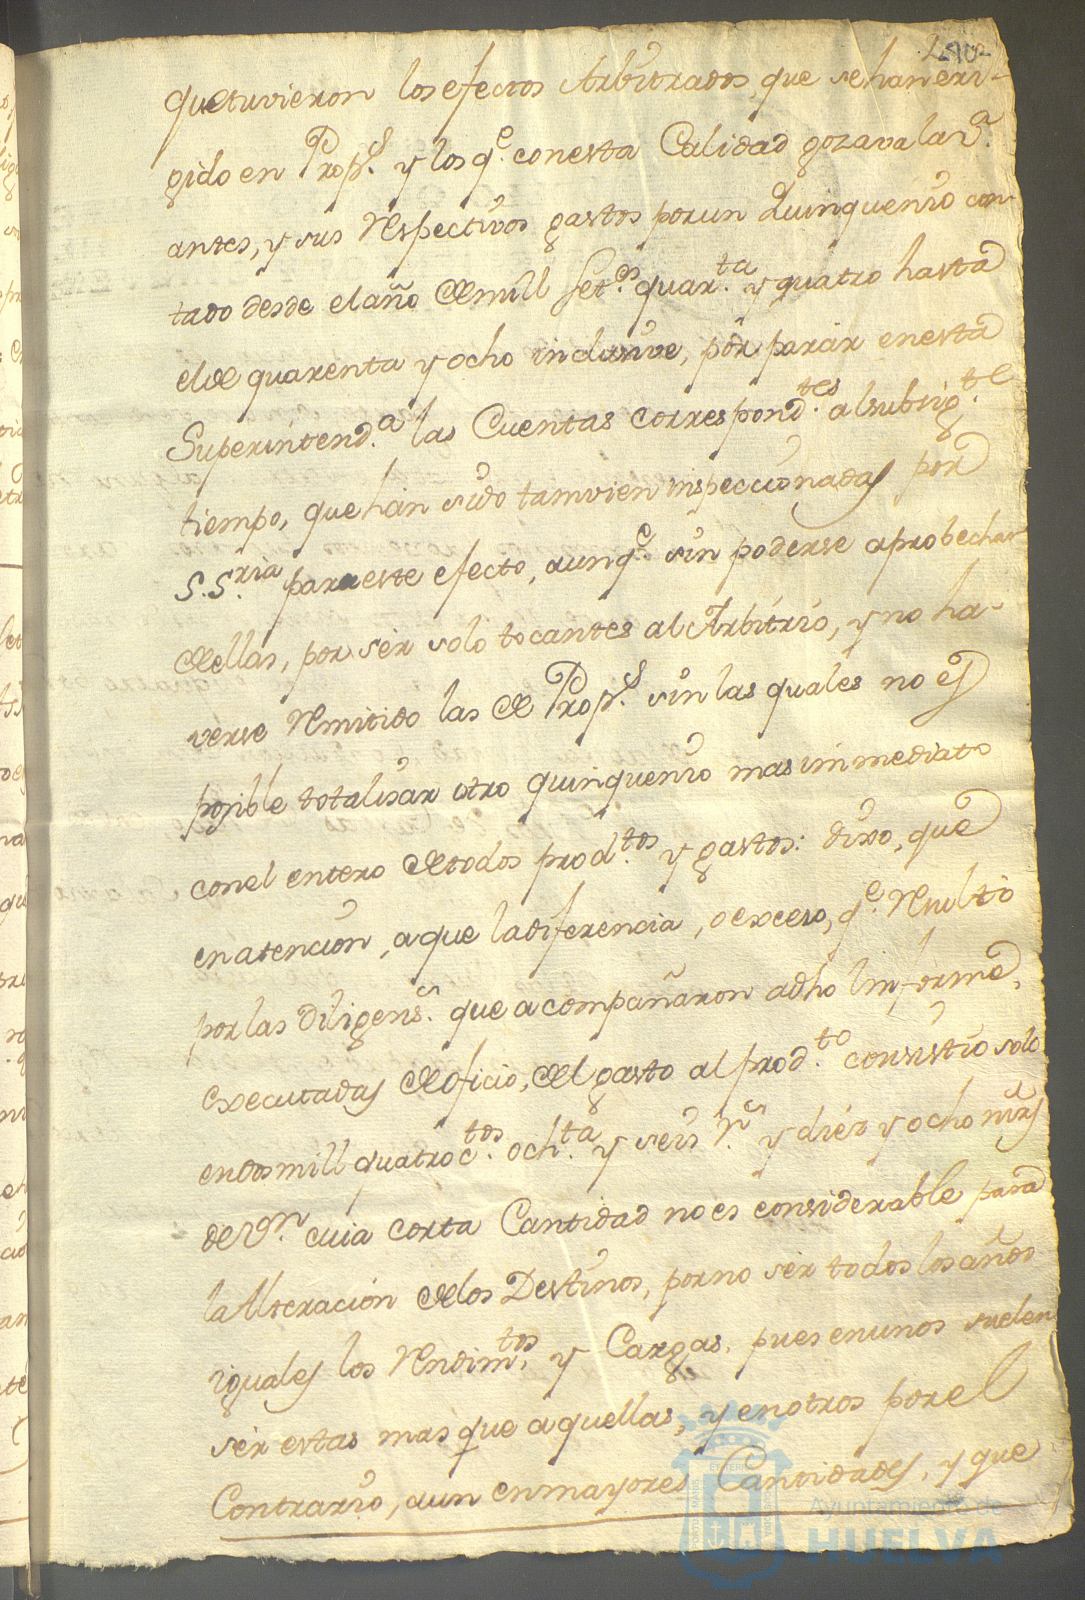 que tuvieron los efectos Arbitrados, que se han eri-
gido en Prop.s y los q.e con esta Calidad gozava la V.a
antes, y sus respectivos gastos por un Quinquenio con-
tado desde el año de mill set.os quar.ta y quatro hasta
el de quarenta y ocho inclusive, por parar en esta
Superintend.a las Cuentas correspond.tes al subsig.te
tiempo, que han sido tamvien inspeccionadas por
S.S.ria para este efecto, aunq.e sin poderse aprobechar
de ellas, por ser solo tocantes al Arbitrio, y no ha-
verse remitido las de Prop.s sin las quales no es
posible totalisar otro quinquenio mas inmediato
con el entero de todos prod.tos y gastos: dixo, que
en atencion, a que la diferencia, o exceso, q.e resulto
por las diligens.s que acompañaron a dho Informe,
executadas de oficio, del gasto al prod.to consistio solo
en dos mill quatroc.tos och.ta y seis r.s y diez y ocho mrs
de V.n cuia corta Cantidad no es considerable para
la Alteracion de los Destinos, por no ser todos los años
iguales los rendim.tos y Cargas, pues en unos suelen
ser estas mas que aquellas, y en otros por el
Contrario, aun en mayores Cantidades, y que
Ayuntamiento de
HUELVA